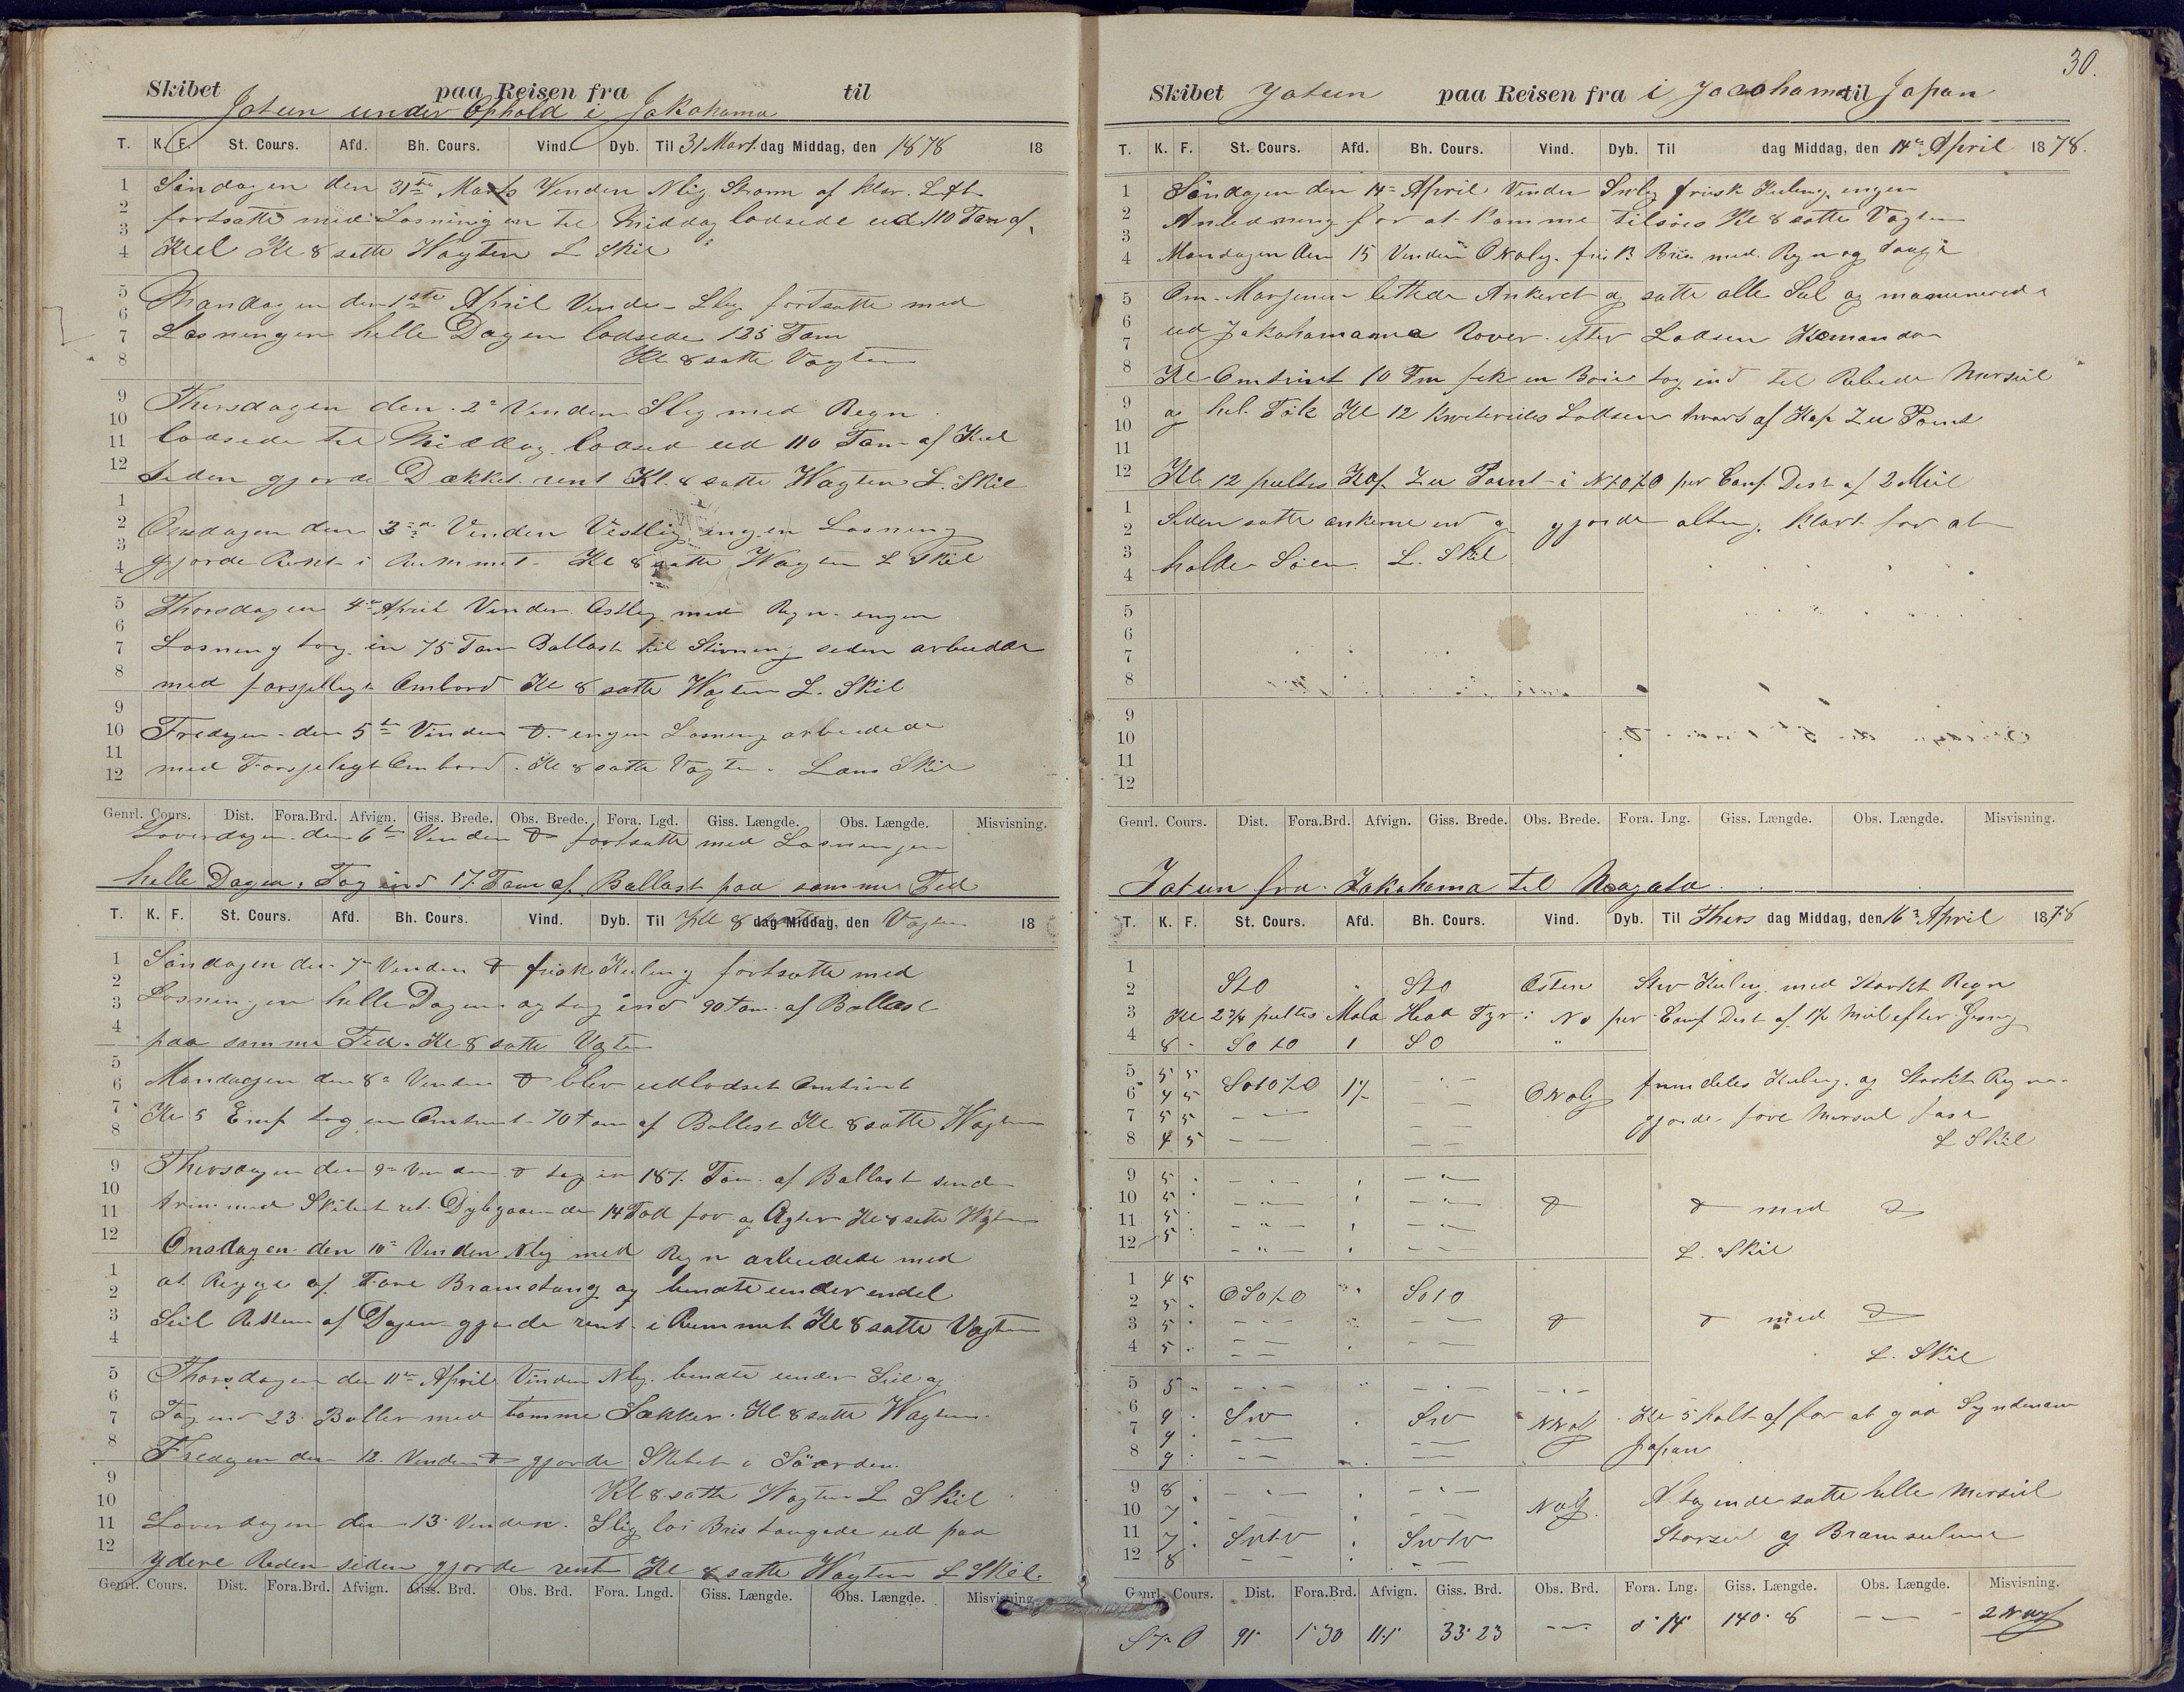 Skibet Jotun under Ophold i Jakohama paa Reisen fra til
T. K. F. St. Cours. Afd. Bh. Cours. Vind. Dyb. Til 31 Mart. dag Middag, den 1878 18
Söndagen den 31te Marts Vinden Nlig Strom af klar Luft
fortsatte med Losningen til Middag lodsede ud 110 Ton af
Kul Kl 8 satte Wagten L Skil
Mandagen den 1ste April Vinden Slig fortsatte med
Losningen helle Dagen lodsede 125 Ton
Kl 8 satte Vagten
Thirsdagen den 2n Vinden Slig med Regn
lodsede til Middag lodsed ud 110 Ton af Kul
siden gjorde Dækket rent Kl. 8 satte Wagten L. Skil
Onsdagen den 3n Vinden Vestlig ingen Losning
gjorde Rent i Rummet Kl 8 satte Wagten L Skil
Thorsdagen 4n April Vinden Ostlig med Regn engen
Losning tog in 75 Ton Ballast til Stivning siden arbeidde
med forsjelligt Ombord Kl 8 satte Wagten L. Skil
Fredagen den 5te Vinden do engen Losning arbeidede
med Forsjeligt Ombord. Kl 8 satte Vagten. Lans Skil
Genrl. Cours. Dist. Fora.Brd. Afvign. Giss. Brede. Obs. Brede. Fora. Lgd. Giss. Længde. Obs. Længde. Misvisning.
Loverdagen den 6te Vinden do fortsatte med Losningen
helle Dagen. Tog ind 17 Ton af Ballast paa samme Tid
T. K. F. St. Cours. Afd. Bh. Cours. Vind. Dyb. Til Kl 8 satte dag Middag, den Vagten 18
Söndagen den 7n Vinden do frisk Kuling fortsatte med
Losningen helle Dagen og tog ind 90 Ton af Ballast
paa samme Tid. Kl 8 satte Vagten
Mandagen den 8n Vinden do blev udlodset Omtrint
Kl 5 Emf tog in Omtrint 70 Ton af Ballast Kl 8 satte Wagten
Thirsdagen den 9n Vinden do tog in 187 Ton af Ballast
trimmed Skibet ret. Dybgaaende 14 Fod for og Agter Kl 8 satte Wagten
Onsdagen den 10n Vinden Nlig med Regn arbeidede med
at Rigge af Fore Bramstang og bendte under endel
Seil Resten af Dagen gjorde rent i Rummet Kl 8 satte Vagten
Thorsdagen den 11te April Vinden Nlig. bendte under Seil og
Tog ind 23 Baller med tomme Sækker. Kl 8 satte Wagten
Fredagen den 12. Vinden do gjorde Skibet i Söorden.
Kl 8 satte Wagten L Skil
Loverdagen den 13 Vinden Slig loi Bris taugede ud paa
ydere Reden siden gjorde rent Kl 8 satte Wagten L Skil.
Genrl. Cours. Dist. Fora.Brd. Afvign. Giss. Brd. Obs. Brd. Fora. Lngd. Giss. Længde. Obs. Længde. Misvisning.
30.
Skibet Jotun paa Reisen fra i Jocohama til Japan
T. K. F. St. Cours. Afd. Bh. Cours. Vind. Dyb. Til dag Middag, den 14n April 1878.
Söndagen den 14n April Vinden Swlig frisk Kuling engen
Anledning for at komme tilsöis Kl 8 satte Vagten
Mandagen den 15 Vinden ONolig. frisk Bris med Regn og
Om Morgenen lettede Ankeret og satte alle Seil og manuverede
ud Jakohamana efter Lodsen
Kl Omtrint 10 Fm fik en Boie tog ind til Mersseil
og Tök Kl 12 kviterede Lodsen tvers af Kap Zu Point
Kl 12 peiltes Kap Zu Point i NtOtO per Comp. Dist af 2 Miil
Siden satte ankerne ind og gjorde alting klart for at
holde Söen. L. Skil
Genrl. Cours. Dist. Fora.Brd. Afvign. Giss. Brede. Obs. Brede. Fora. Lng. Giss. Længde. Obs. Længde. Misvisning.
Jotun fra Jakohama til Nagata
T. K. F. St. Cours. Afd. Bh. Cours. Vind. Dyb. Til Thirs dag Middag, den 16n April 1878
StO " StO Osten Stiv Kuling med Starkt Regn
Kl 2 3/4 peiltes Mela Head Fyr i No per Comp Dist af 1½ Miil efter
8 - So to 1 SO "
5 5 SototO 1½ ONolig
4 5 gjorde fore Merseil fast
5 5
4 5 L Skil
5
5 do do med do
5
5 L. Skil
4 5 OSotO SotO
5 do do med do
5
5 L. Skil
5
9 Sw Sw NNolig Kl 5 holt af for at gaa Syndenom
9 Japan
9
8
7 Nolig Aftagende satte helle Merseil
7 Swtw Swtw Storseil og Bramseilene
8
Genrl. Cours. Dist. Fora.Brd. Afvign. Giss. Brd. Obs. Brd. Fora. Lng. Giss. Længde. Obs. Længde. Misvisning.
91 1°30 33°23 140°8